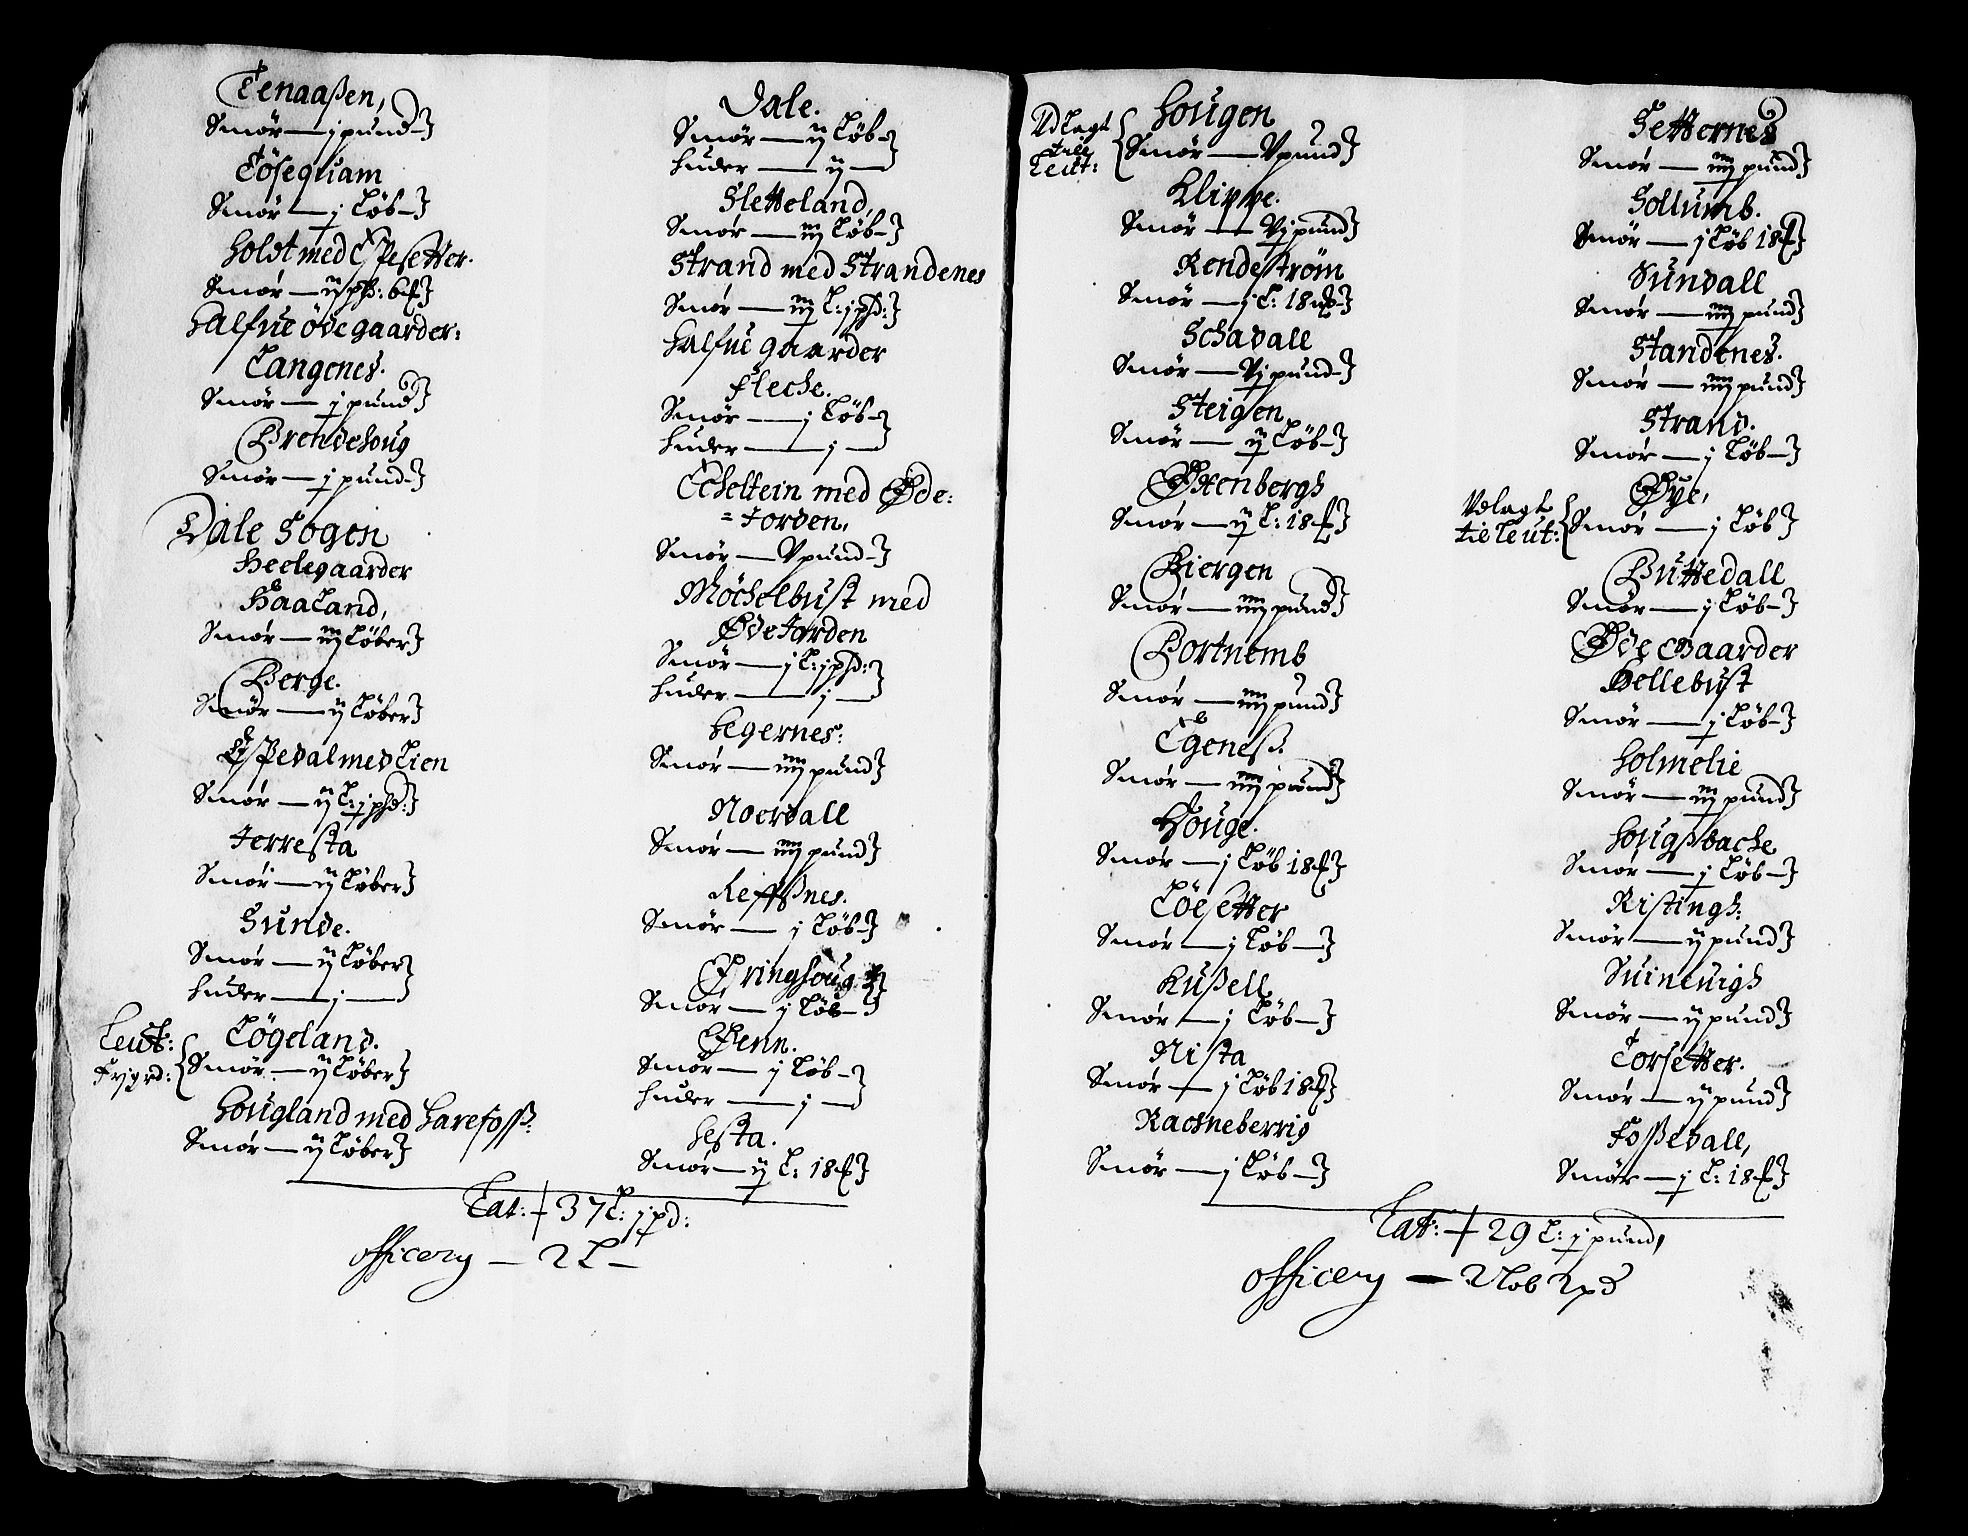 Tenaaßen,
Smør — j pund
Tösequam
Smør — j Løb
Holdt med Espesetter.
Smør — ij phd: 6
Halfue öde gaarder:
Langenes.
Smør — j pund
Brendehoug
Smør — j pund
Dale Sogen
Heelegaarder
Haaland,
Smør — iij Løber
Berge.
Smør — ij Løber
Espedal med Lien
Smør — ij L: j phd:
Ferresta
Smør — ij Løber
Sunde.
Smør — ij Løber
Huder — j —
Leut: Løgeland.
Frijgrd: Smør — ij Løber
Hougland med Harefoss:
Smør — ij Løber
Dale.
Smør — ij Løb
Huder — ij —
Sletteland,
Smør — iij Løb
Strand med Strandenes
Smør — iij L: j phd:
Halfue gaarder
Fleche.
Smør — j Løb
Huder — j —
Echeltein med Øde:
=Jorden,
Smør — V pund
Möchelbust med
Øde Jorden
Smør — j L: j phd:
Huder — j —
Hegernes:
Smør — iiij pund
Noerdall
Smør — iiij pund
Reffßnes.
Smør — j Løb
Bringhoug
Smør — j Løb
Fenn.
Smør — j Løb
Huder — j —
Hesta.
Smør — ij L: 18
Lat: 37 L: j pd:
officery — 2 L —
Udlagt Hougen
Leut: Smør — V pund
Klippe.
Smør — Vj pund
Rendestrøm
Smør — j L: 18
Schadall
Smør — Vj pund
Steigen,
Smør — ij Løb
Øxenbergh
Smør — ij L: 18
Biergen
Smør — iiij pund
Bortnemb
Smør — iiij pund
Egeneß.
Smør — iiij pund
Houge.
Smør — j Løb 18
Löesetter
Smør — j Løb
Kußell
Smør — j Løb
Nista
Smør — j Løb 18
Rachneberrig
Smør — j Løb
Setternes
Smør — iiij pund
Sollumb.
Smør — j Løb 18
Sundall
Smør — iiij pund
Standenes.
Smør — iiij pund
Strand.
Smør — j Løb
Udlagt Øye,
tie Leut: Smør — j Løb
Buttedall
Smør — j Løb
Øde Gaarder
Hellebust
Smør — j Løb
Holmelie
Smør — iij pund
Hougßbache
Smør — j Løb
Ristingh:
Smør — ij pund
Suineuigh
Smør — ij pund
Torsetter.
Smør — ij pund
Foßedall,
Smør — j L: 18
Lat: 29 L: j pund,
officery — 2 Løb 2 pd